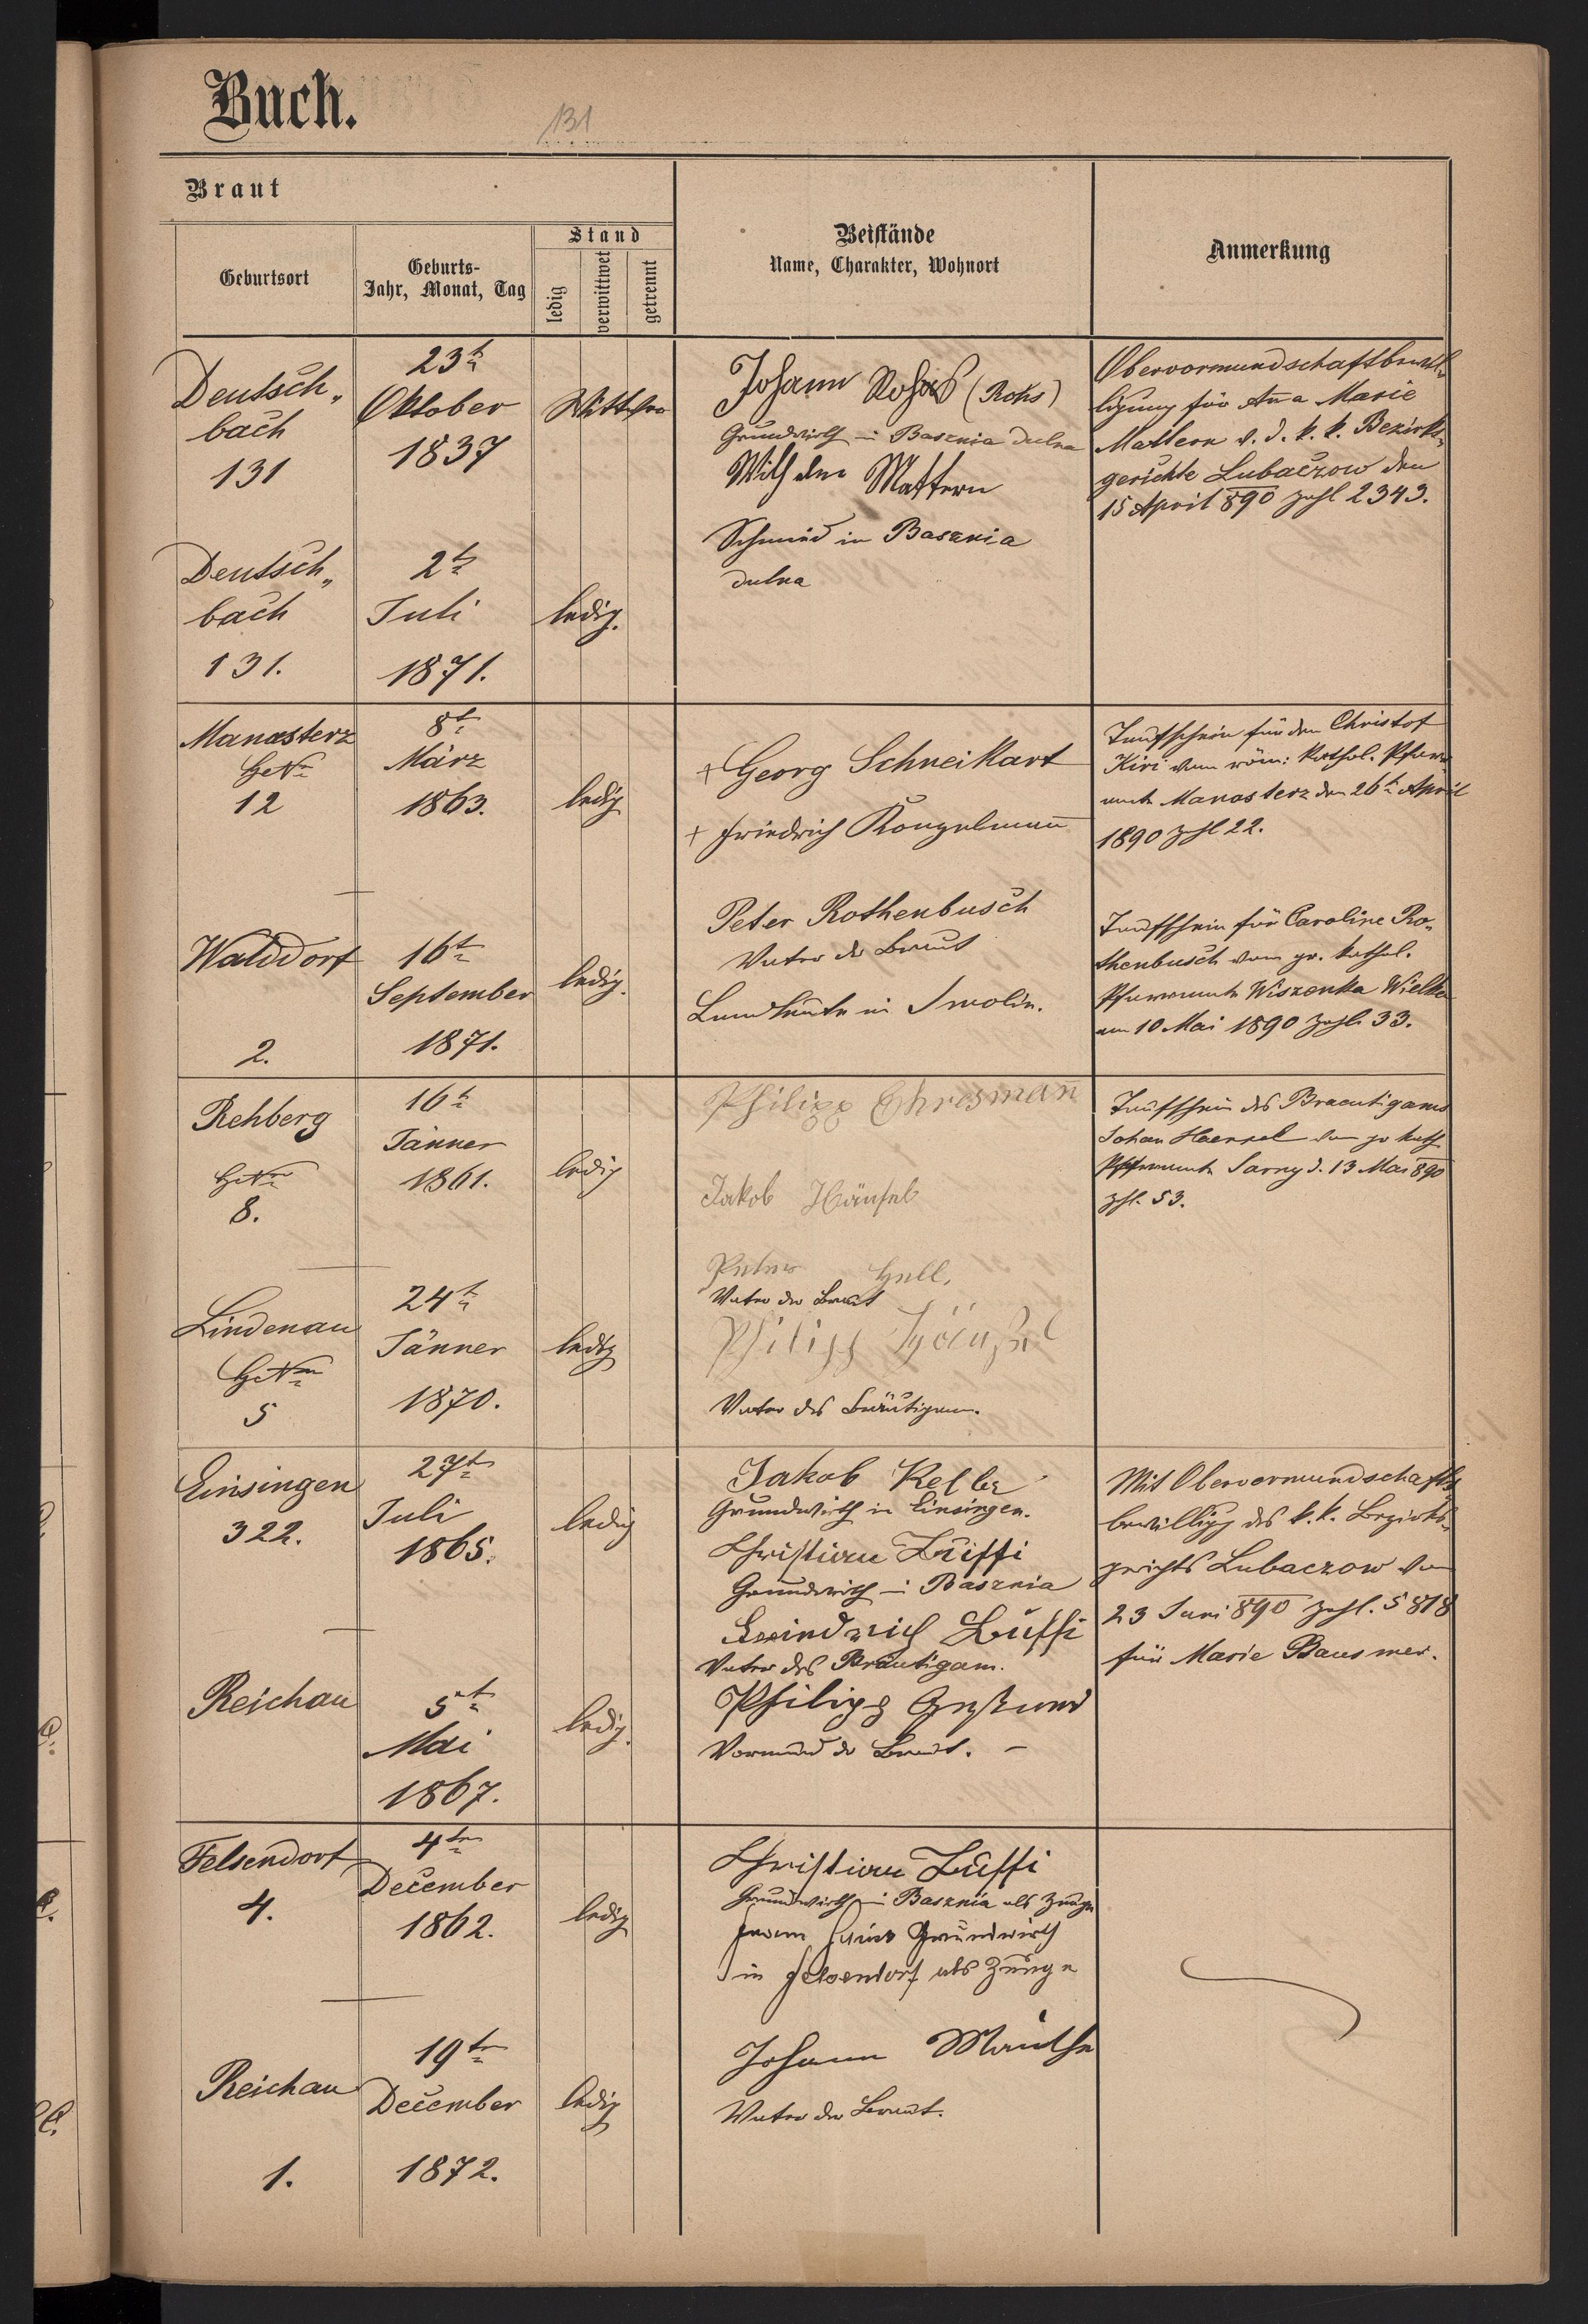 Buch.
131
Braut
Geburtsort
Geburts-
Jahr, Monat, Tag
Stand
ledig
verwittwet
getrennt
Beistände
Name, Charakter, Wohnort
Anmerkung
Deutsch„
bach
131
23t
Oktober
1837
Wittwe
Johann Rohs (Rohs)
Grundwirth in Basznia dulna
Wilhelm Mattern
Schmied in Basznia
dulna
Obervormundschaftbewil„
ligung für Ana Marie
Mattern v. d. k. k. Bezirks„
gerichte Lubaczow den
15 April 890 Zahl 2343.
Deutsch„
bach
131.
2t
Juli
1871.
ledig.
Manasterz
HsNr
12
8t
März
1863.
ledig
+ Georg Schneikart
+ Friedrich Konzelmann
Taufschein für den Christof
Kiri vom röm: kathol. Pfarr
amte Manasterz den 26t April
1890 Zhl 22.
Walddorf
2.
16t
September
1871.
ledig.
Peter Rothenbusch
Vater der Braut
Landleute in Smolin.
Taufschein für Caroline Ro„
thenbusch vom gr. kathol.
Pfarramte Wiszenka Wielka
am 10 Mai 1890 Zahl 33.
Rehberg
HsNr
8.
16t
Jänner
1861.
ledig
Philipp Chresmann
Jakob Hänsel
Taufschein des Braeutigams
Johan Haensel vom gr kath
Pfarramte Sarny d. 13 Mai 890
Zhl. 53.
Lindenau
HsNr
5
24t
Jänner
1870.
ledig
Peter Hell.
Vater der Braut
Philipp Hänsel
Vater des Bräutigams.
Einsingen
322.
27t
Juli
1865.
ledig
Jakob Keller
Grundwirth in Einsingen.
Christian Buffi
Grundwirth in Basznia
Heindrich Buffi
Vater des Bräutigam.
Mit Obervormundschafts„
bewilligg des k. k. Bezirks„
gerichts Lubaczow vom
23 Juni 890 Zahl. 5818
für Marie Bausmer.
Reichau
5t
Mai
1867.
ledig.
Philipp
Vormund der Braut. –
Felsendorf
4.
4ten
December
1862.
ledig
Christian Buffi
Grundwirth in Basznia als Zeuge
Grundwirth
in Felsendorf als Zeuge
Reichau
1.
19ten
December
1872.
ledig
Johann Mauthe
Vater der Braut.